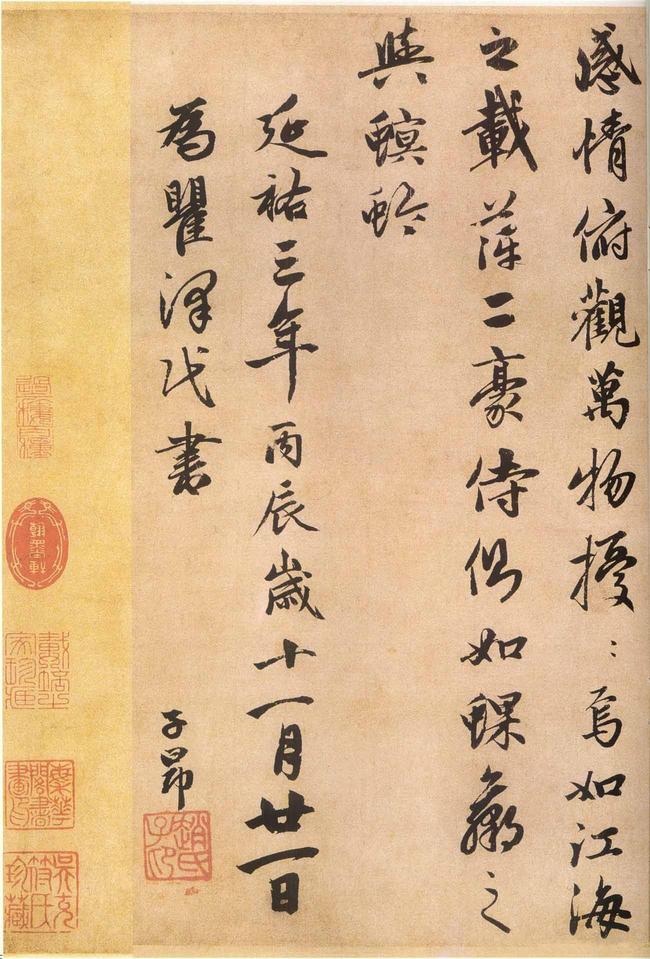 感情俯觀萬物擾〻焉如江海
之載萍二豪侍側如蜾蠃之
與螟蛉
延祐三年丙辰歲十一月廿一日
為瞿澤民書
子昂
趙氏子昂
翰墨軒